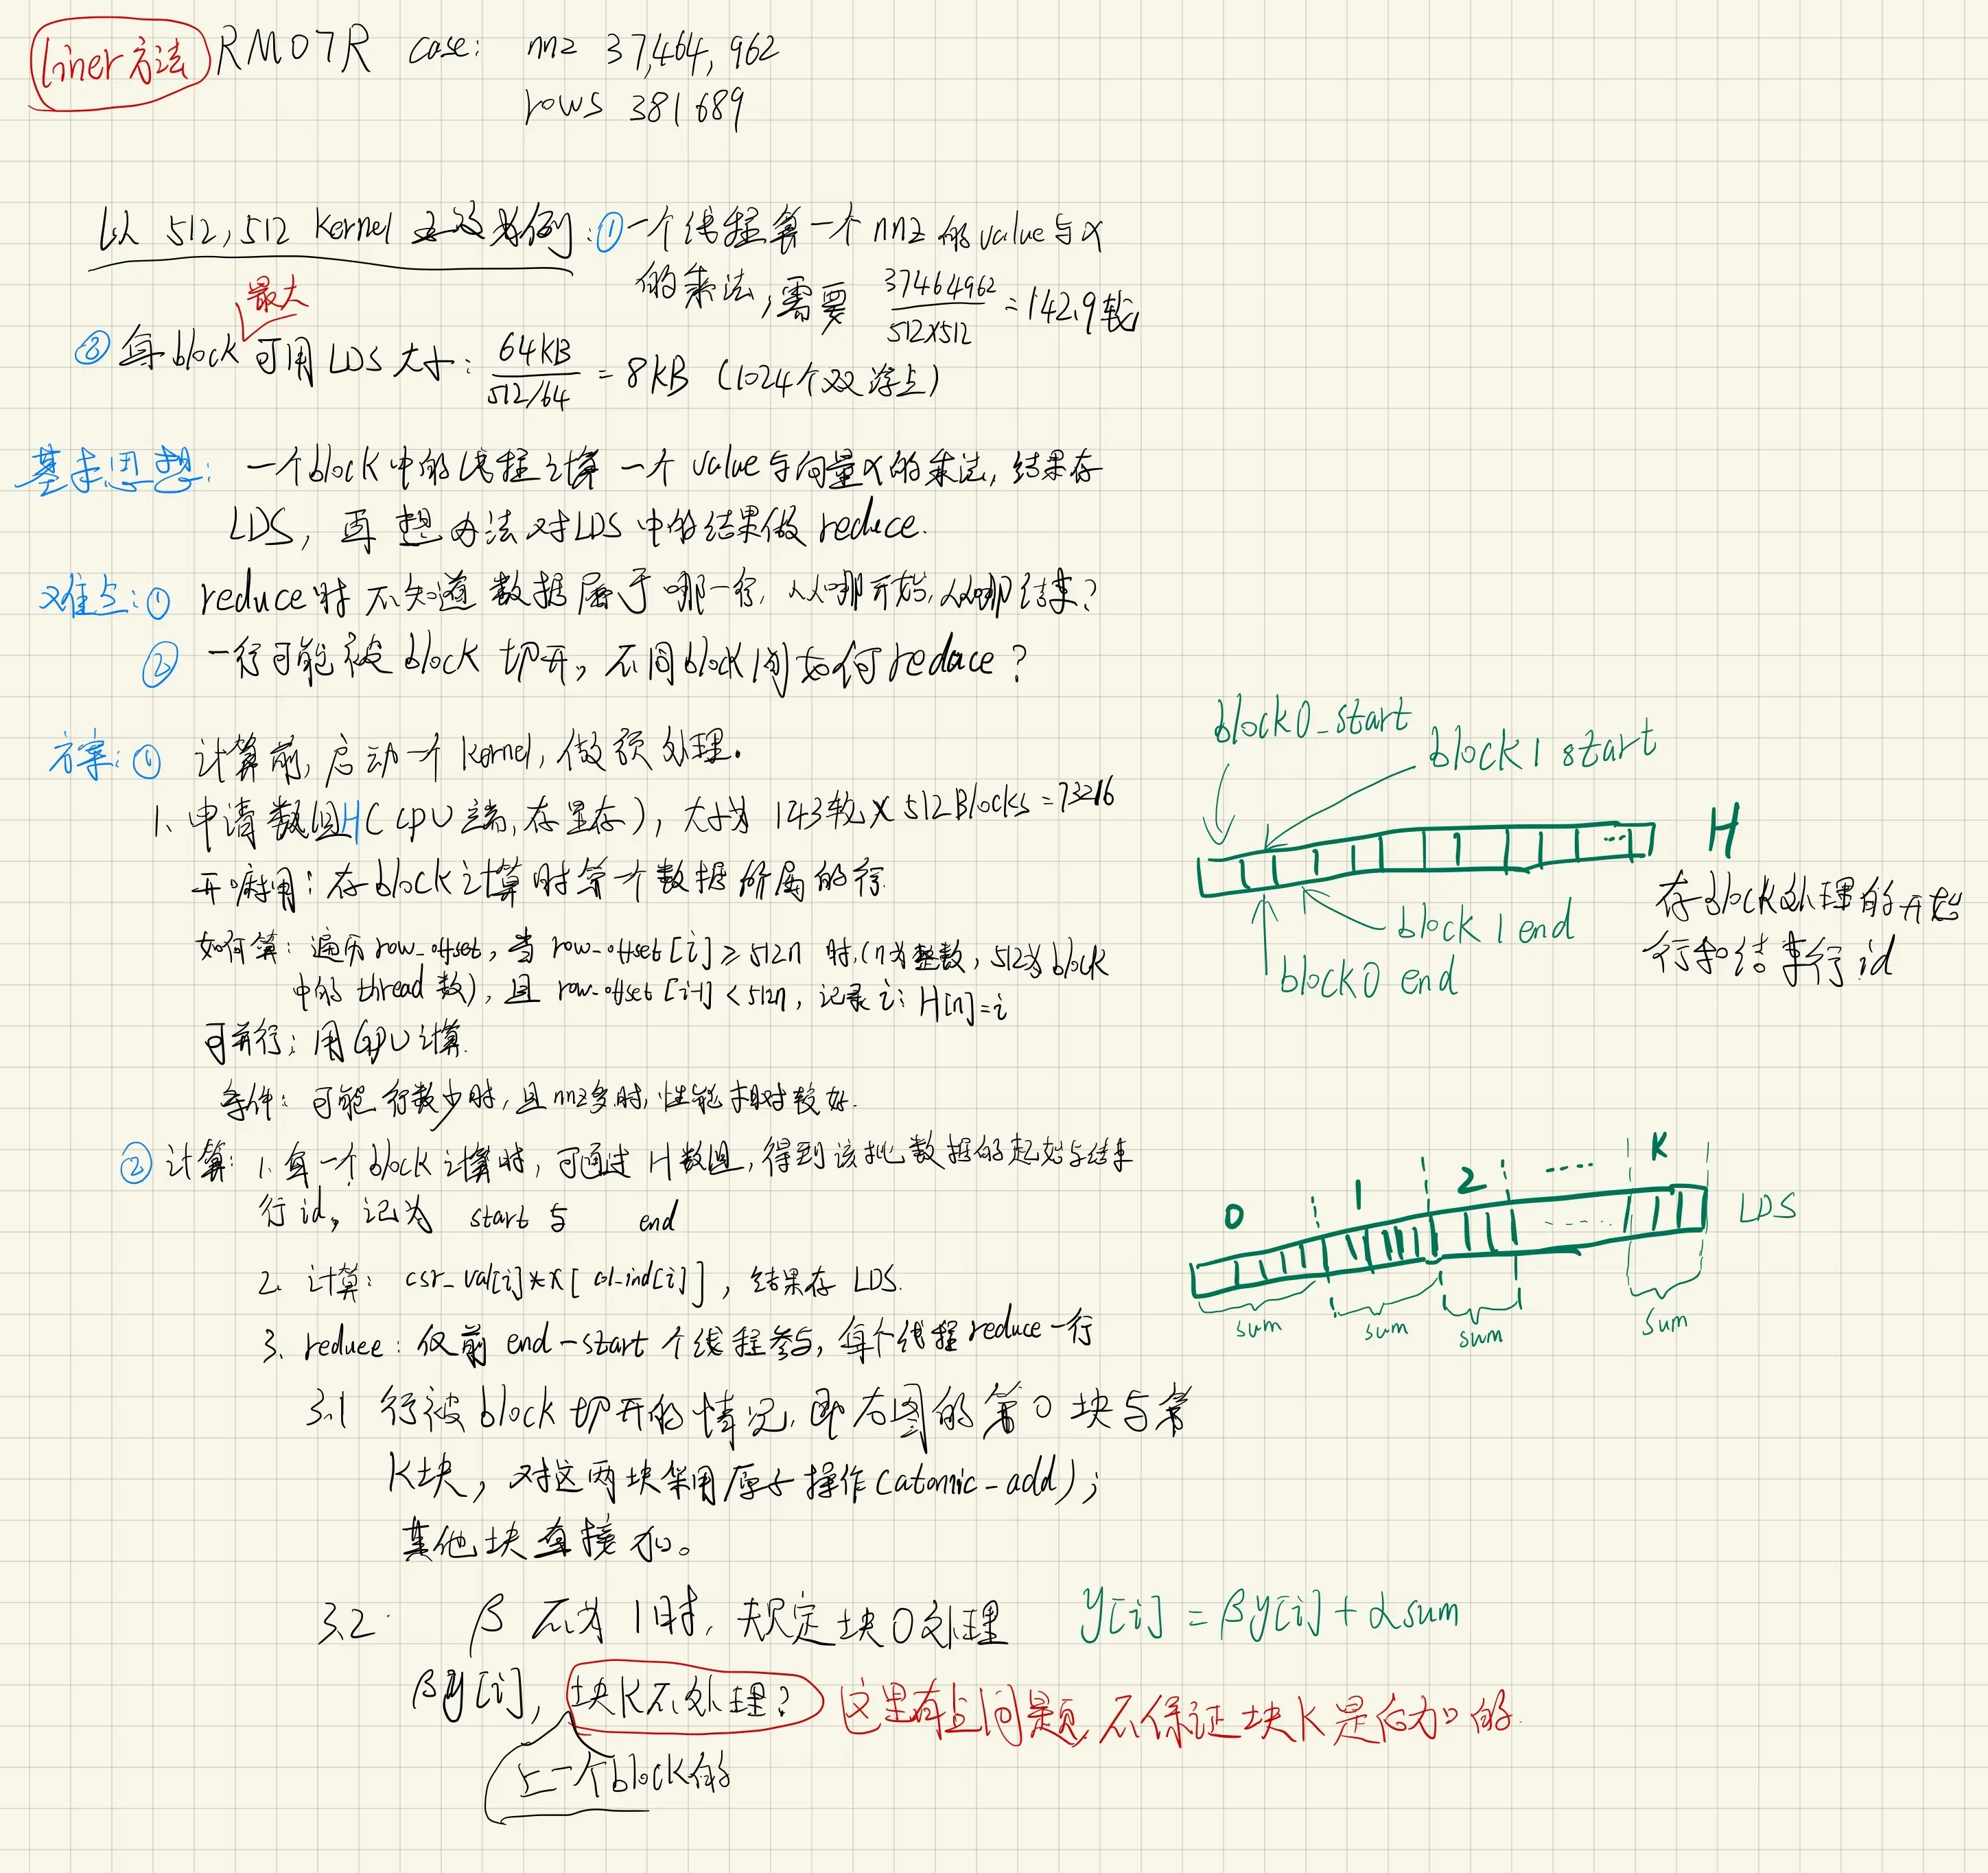 liner方法 RM07R case: nnz 37,464,962
rows 381689
以 512,512 kernel 为例: ①一个线程算一个 nnz 的 value 与 x
的乘法, 需要 37464962/512X512 = 142.9 轮
最大
② 每block可用 LDS 大小: 64KB/512/64 = 8KB (1024个双浮点)
基本思想: 一个block中的线程计算一个 value与向量x的乘法, 结果存
LDS, 再想办法对LDS中的结果做 reduce.
难点: ① reduce时不知道数据属于哪一行, 从哪开始, 从哪结束?
② 一行可能被 block 切开, 不同block间如何reduce?
方案: ① 计算前, 启动一个 kernel, 做预处理。
1、申请数组H(CPU端, 存显存), 大小为 143轮 X 512Blocks = 73216
干嘛用: 存block计算时第一个数据所属的行.
如何算: 遍历 row_offset, 当 row_offset[i] ≥ 512n 时, (n为整数, 512为block
中的 thread 数), 且 row_offset[i-1] < 512n, 记录 i: H[n]=i
可并行: 用GPU计算.
条件: 可能行数少时, 且nnz多时, 性能相对较好.
block0_start
block1 start
H
block1 end
block0 end
存block处理的开始
行和结束行id
② 计算: 1. 每一个block计算时, 可通过 H数组, 得到该批数据的起始与结束
行id, 记为 start 与 end
2. 计算: csr_val[i]*x[col_ind[i]], 结果存 LDS.
3. reduce: 仅前 end-start 个线程参与, 每个线程reduce一行
0 1 2 .... K
LDS
sum sum sum sum
3.1 行被block切开的情况, 即右图的第0块与第
K块, 对这两块采用原子操作(atomic-add);
其他块直接加。
3.2 β 不为1时, 规定块0处理 y[i] = βy[i] + αsum
βy[i], 块K不处理? 这里有点问题, 不保证块K是后加的.
上一个block的